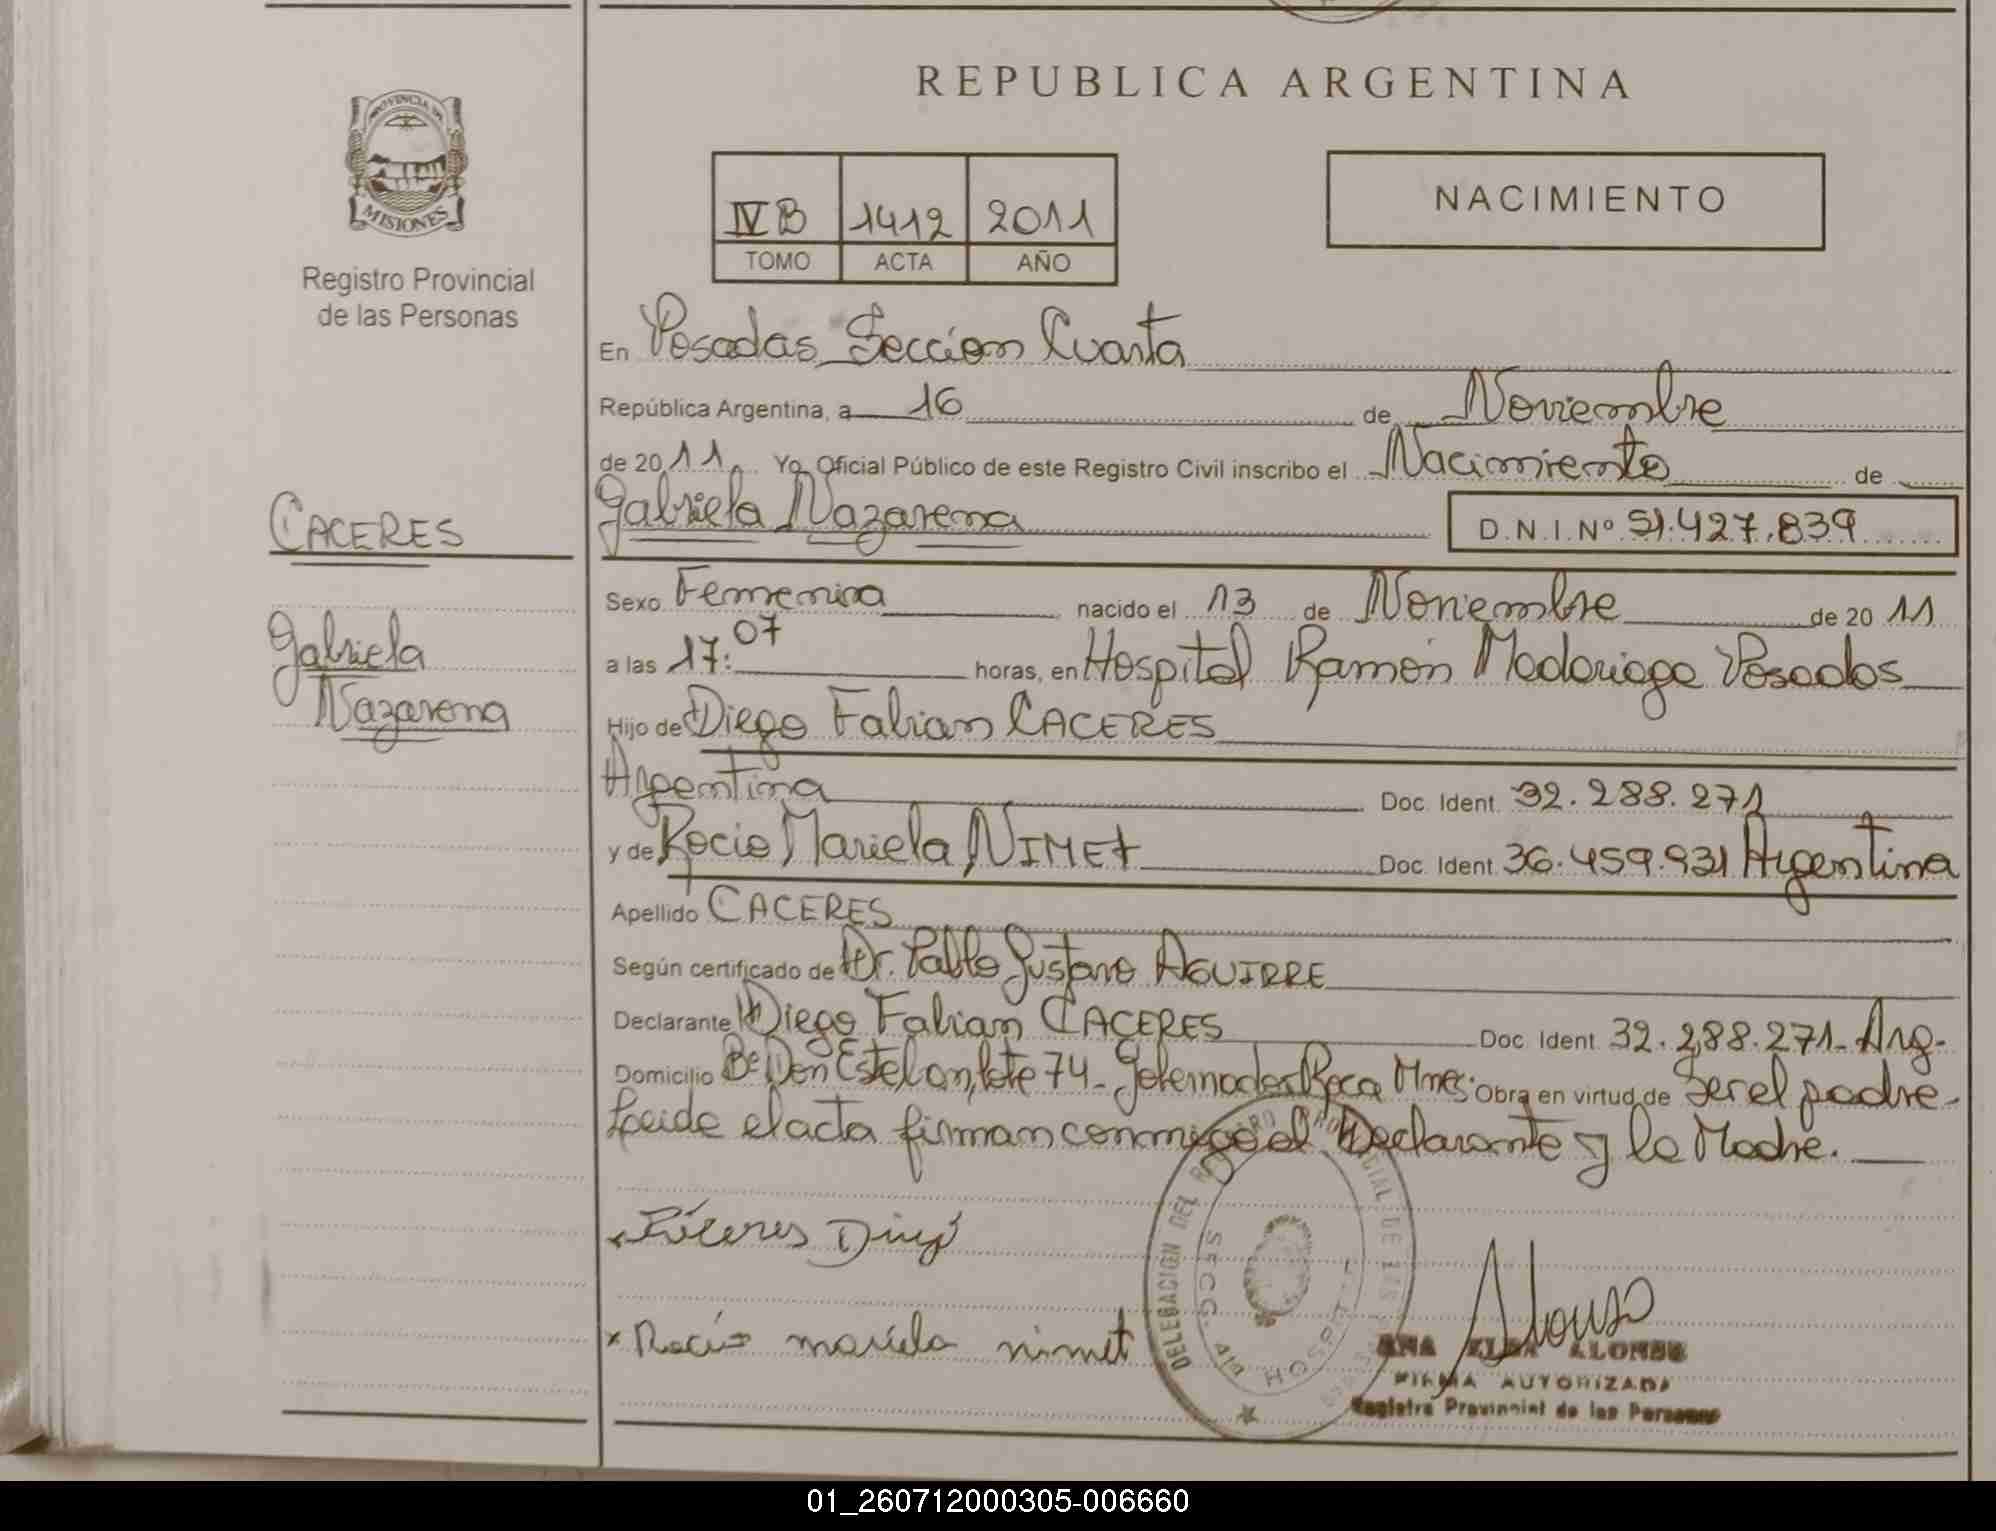 REPUBLICA ARGENTINA
PROVINCIA DE
MISIONES
Registro Provincial
de las Personas
IV B 1412 2011
TOMO ACTA AÑO
NACIMIENTO
En Posadas Seccion Cuarta
República Argentina, a 16 de Noviembre
de 2011 Yo, Oficial Público de este Registro Civil inscribo el Nacimiento de
Gabriela Nazarena D.N.I.Nº 51.427.839
CACERES
Gabriela
Nazarena
Sexo Femenina nacido el 13 de Noviembre de 2011
a las 17:07 horas, en Hospital Ramón Madariaga Posadas
Hijo de Diego Fabian CACERES
Argentina Doc. Ident. 32.288.271
y de Rocio Mariela NIMET Doc. Ident. 36.459.931 Argentina
Apellido CACERES
Según certificado de Dr. Pablo Gustavo AGUIRRE
Declarante Diego Fabian CACERES Doc. Ident. 32.288.271- Arg-
Domicilio Bº Don Esteban, lote 74- Gobernador Roca Mnes. Obra en virtud de Ser el padre-
Leida el acta firman conmigo el Declarante y la Madre.
Cáceres Diego
x Rocío mariela nimet
DELEGACION DEL REGISTRO PROVINCIAL DE LAS
SECC. 4ta HOSPIT
Alonso
ANA ELBA ALONSO
FIRMA AUTORIZADA
Registro Provincial de las Personas
01_260712000305-006660